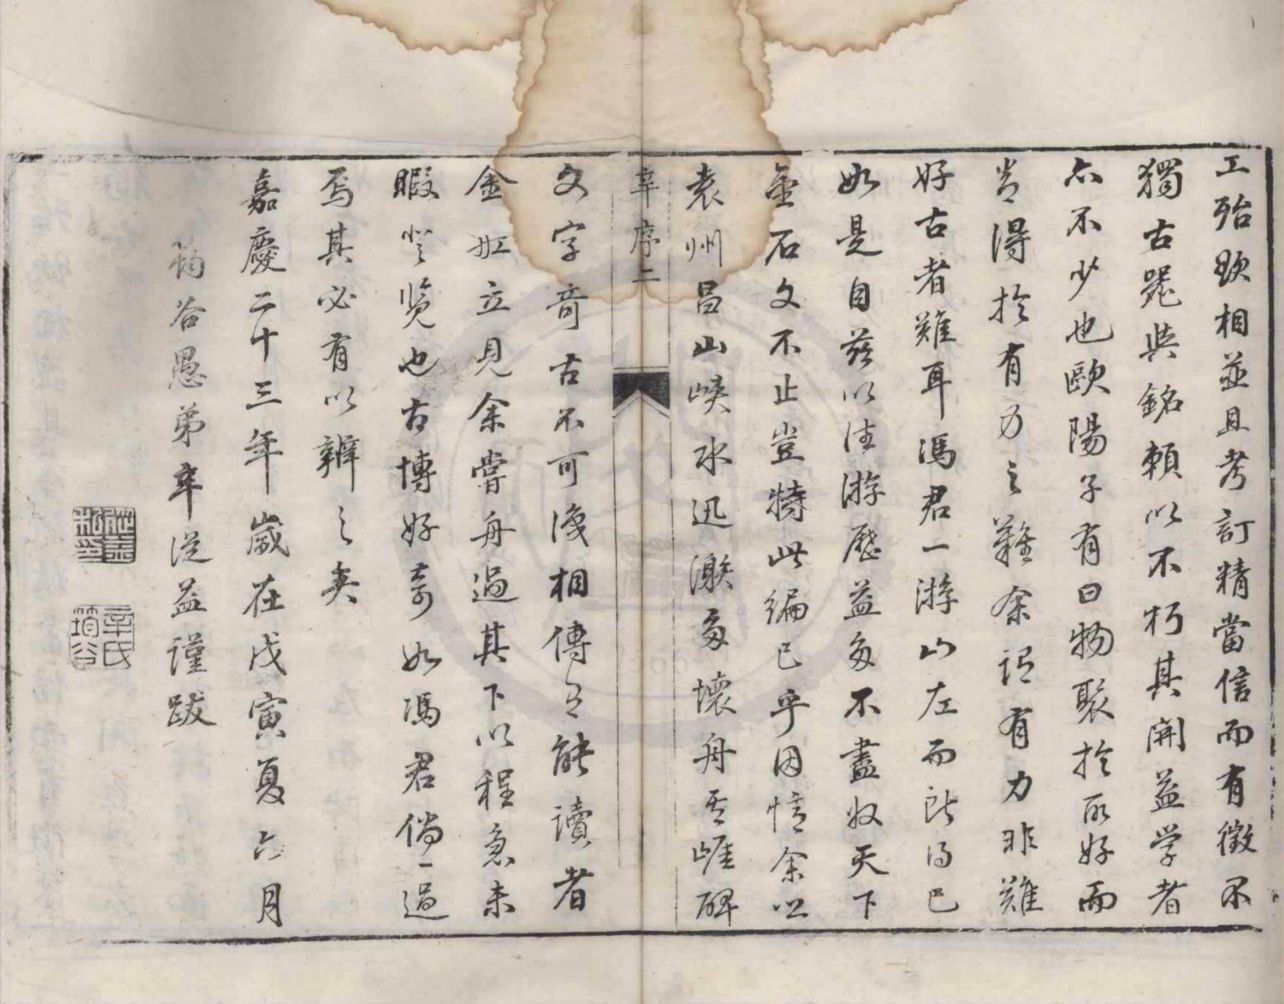 工殆欲相並且考訂精當信而有徵不
獨古器與銘賴以不朽其開益学者
亦不少也歐陽子有曰物聚於所好而
常得於有力之難余謂有力非難
好古者難耳馮君一游山左而所得已
如是自茲以往游歷益多不盡收天下
金石文不止豈特此編已乎因憶余
袁州昌山峽水迅濑多壞舟其崖碑
辛序二
文字奇古不可識相傳有能讀者
金缸立見余嘗舟過其下以程急未
暇登览也古博好奇如馮君倘一過
焉其必有以辨之矣
嘉慶二十三年歲在戊寅夏六月
筠谷愚弟辛從益謹跋
從益私印
辛氏筠谷